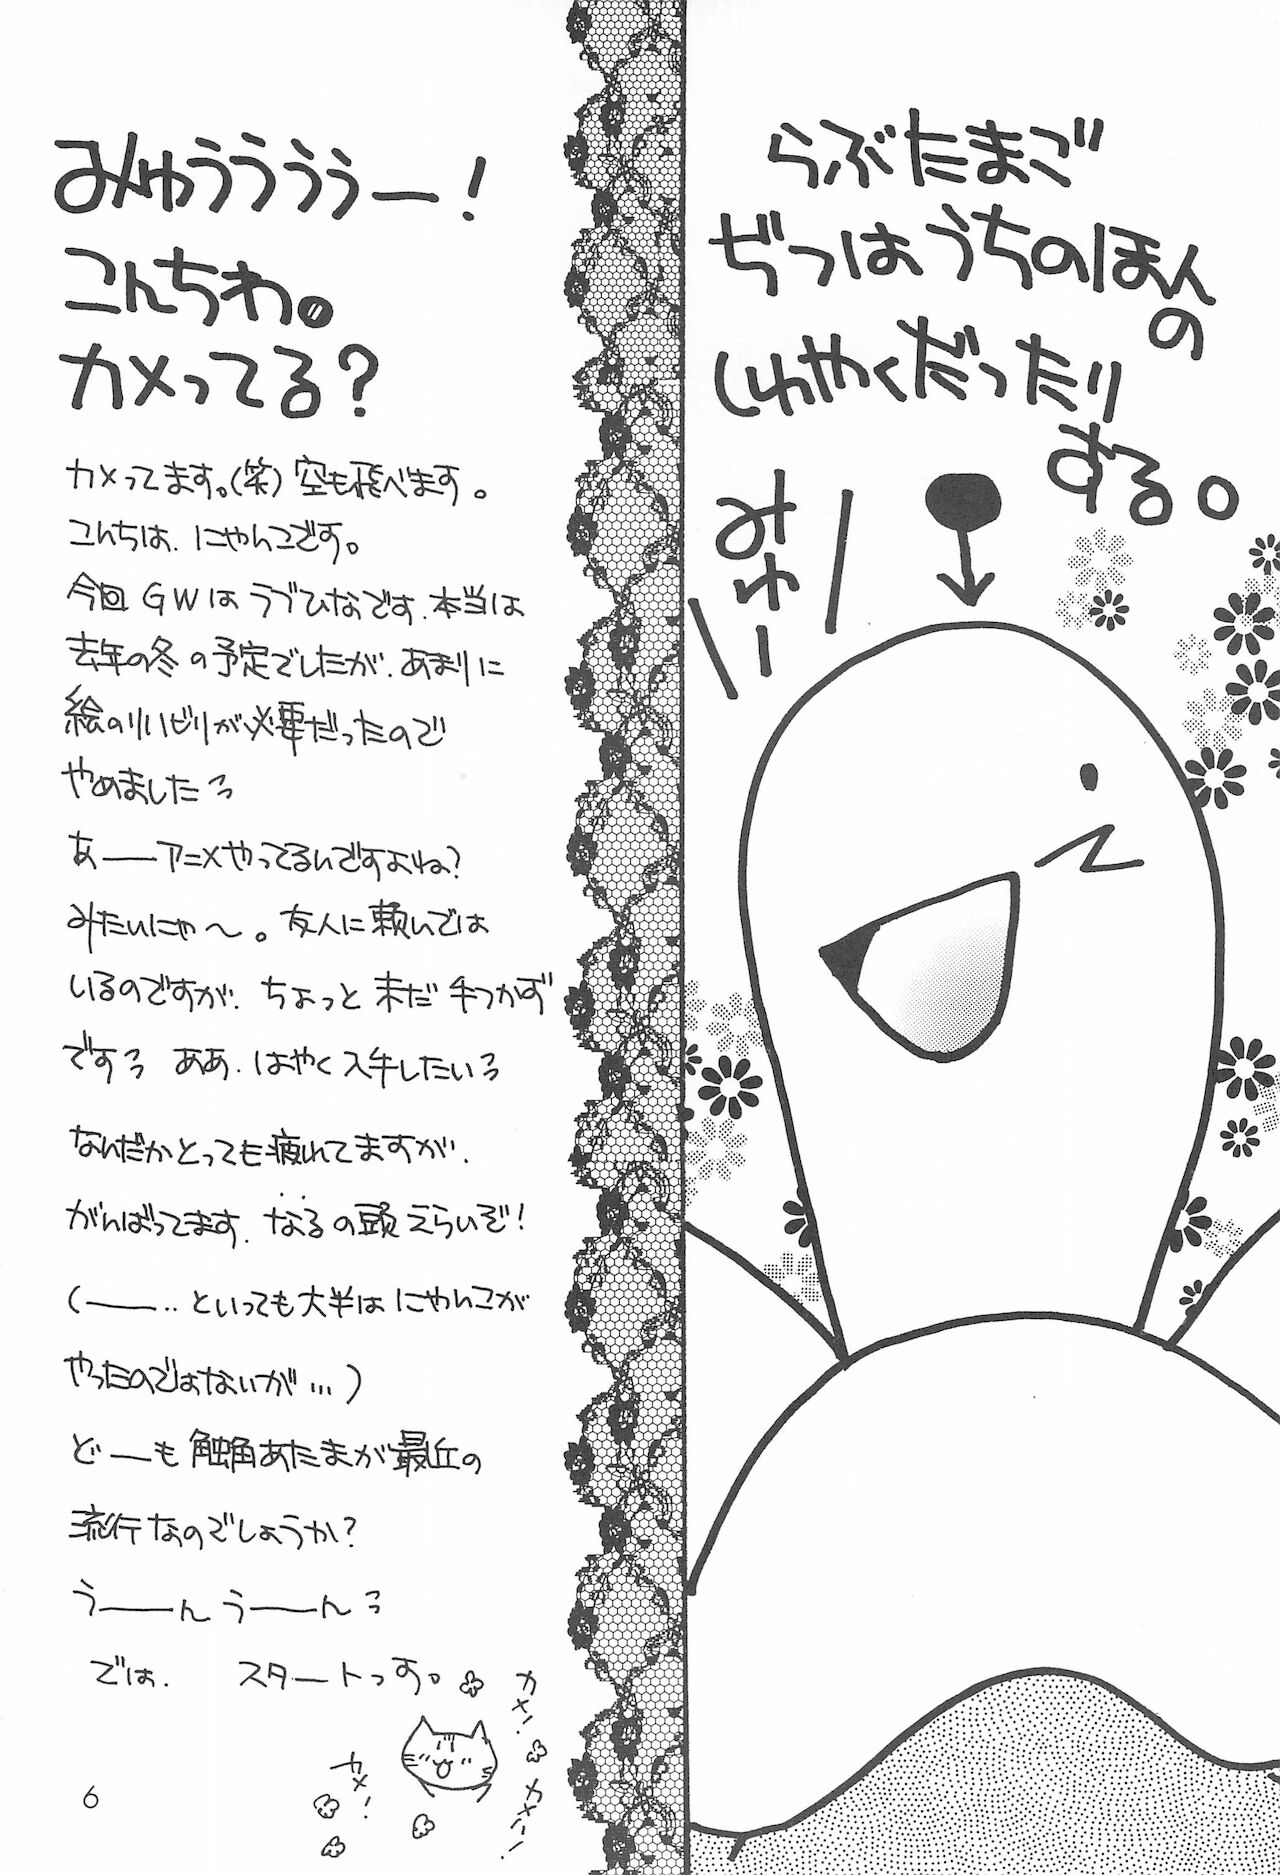 みゅうううぅー!
こんちわ。
カメってる?
カメってます。(笑)空も飛べます。
こんちは、にゃんこです。
今回GWはラブひなです。本当は
去年の冬の予定でしたが、あまりに
絵のリハビリが必要だったので
やめましたっ
あーアニメやってるんですよね?
みたいにゃ〜。友人に頼んでは
いるのですが、ちょっと未だ手つかず
ですっ ああ、はやく入手したいっ
なんだかとっても疲れてますが、
がんばってます。なるの頭えらいぞ!
(ー‥といっても大半はにゃんこが
やったのではないが…)
どーも触角あたまが最近の
流行なのでしょうか?
うーんうーんっ
では、 スタートっす。
カメ!
カメ!
カメー!
6
らぶたまご
ぢつはうちのほん
の
しゅやくだったり
する。
みゅー